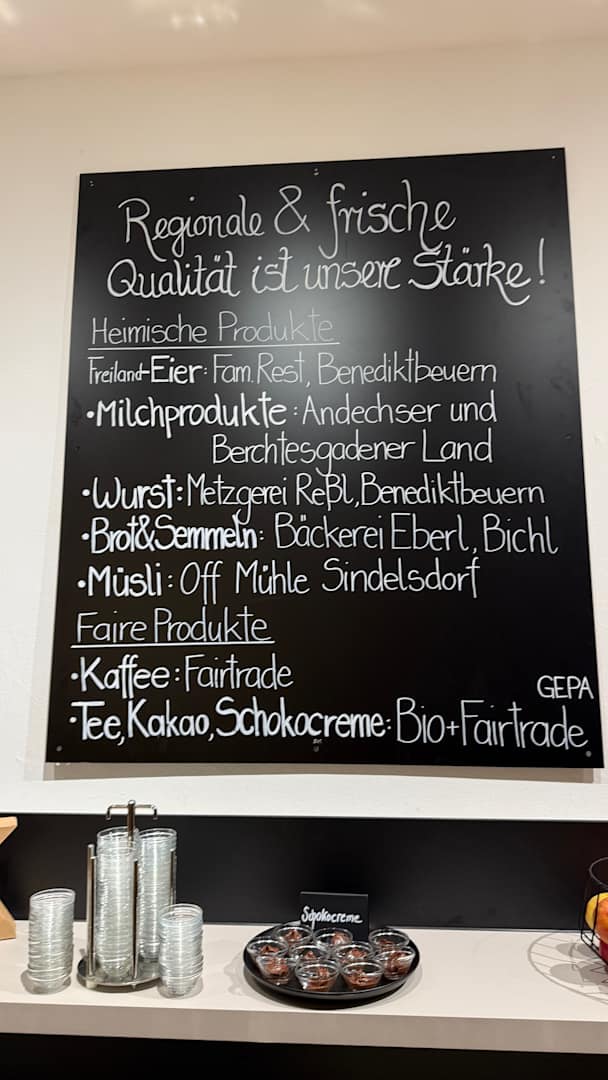 Regionale & frische
Qualität ist unsere Stärke!
Heimische Produkte
Freiland-Eier: Fam. Rest, Benediktbeuern
•Milchprodukte: Andechser und
Berchtesgadener Land
•Wurst: Metzgerei Reßl, Benediktbeuern
•Brot&Semmeln: Bäckerei Eberl, Bichl
•Müsli: Off Mühle Sindelsdorf
Faire Produkte
•Kaffee: Fairtrade
GEPA
•Tee, Kakao, Schokocreme: Bio+Fairtrade
Schokocreme